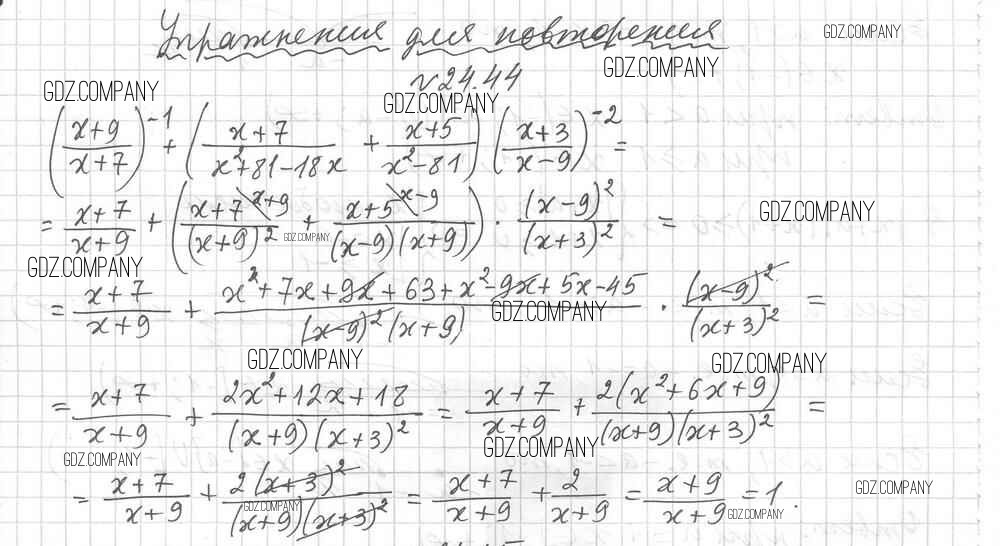 GDZ.COMPANY
Упражнения для повторения
GDZ.COMPANY
№24.44
GDZ.COMPANY
GDZ.COMPANY
((x+9)/(x+7))^-1 + ((x+7)/(x²+81-18x) + (x+5)/(x²-81)) ((x+3)/(x-9))^-2 =
= (x+7)/(x+9) + ((x+7 \x+9)/(x+9)² + (x+5 \x-9)/((x-9)(x+9))) · (x-9)²/(x+3)² =
GDZ.COMPANY
GDZ.COMPANY
GDZ.COMPANY
= (x+7)/(x+9) + (x²+7x+9x+63+x²-9x+5x-45)/((x-9)²(x+9)) · (x-9)²/(x+3)² =
GDZ.COMPANY
GDZ.COMPANY
GDZ.COMPANY
= (x+7)/(x+9) + (2x²+12x+18)/((x+9)(x+3)²) = (x+7)/(x+9) + 2(x²+6x+9)/((x+9)(x+3)²) =
GDZ.COMPANY
GDZ.COMPANY
= (x+7)/(x+9) + 2(x+3)²/((x+9)(x+3)²) = (x+7)/(x+9) + 2/(x+9) = (x+9)/(x+9) = 1.
GDZ.COMPANY
GDZ.COMPANY
GDZ.COMPANY